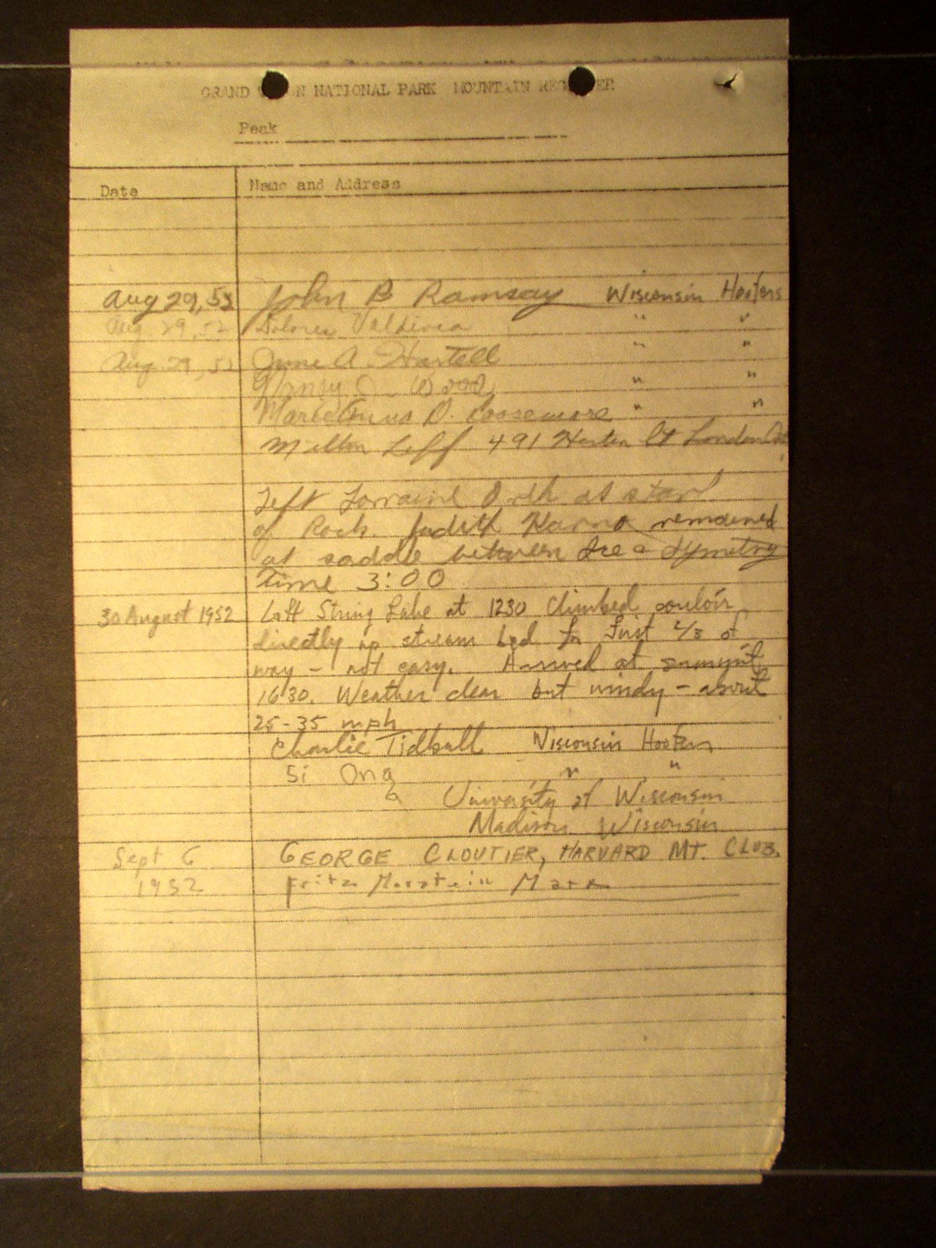 GRAND N NATIONAL PARK MOUNTAIN REG ER
Peak
Date Name and Address
Aug 29, 52 John B Ramsay Wisconsin Hoofers
Aug. 29, 52 Dolores Valdivia " "
Aug. 29, 52 June A. Hartell " "
Nancy D. Wood " "
Marie Anna D. " "
Milton Leff 491 Ct London
Left Lorraine Orth at start
of Rock. Judith remained
at saddle between Ice & Symetry
time 3:00
30 August 1952 Left String Lake at 1230 Climbed couloir
directly up stream bed for first 2/3 of
way - not easy. Arrived at summit
1630. Weather clear but windy - about
25-35 mph
Charlie Tidball Wisconsin Hoofers
Si Ong " "
University of Wisconsin
Madison Wisconsin
Sept 6 GEORGE CLOUTIER, HARVARD MT. CLUB.
1952 Fritz Morstein Marx